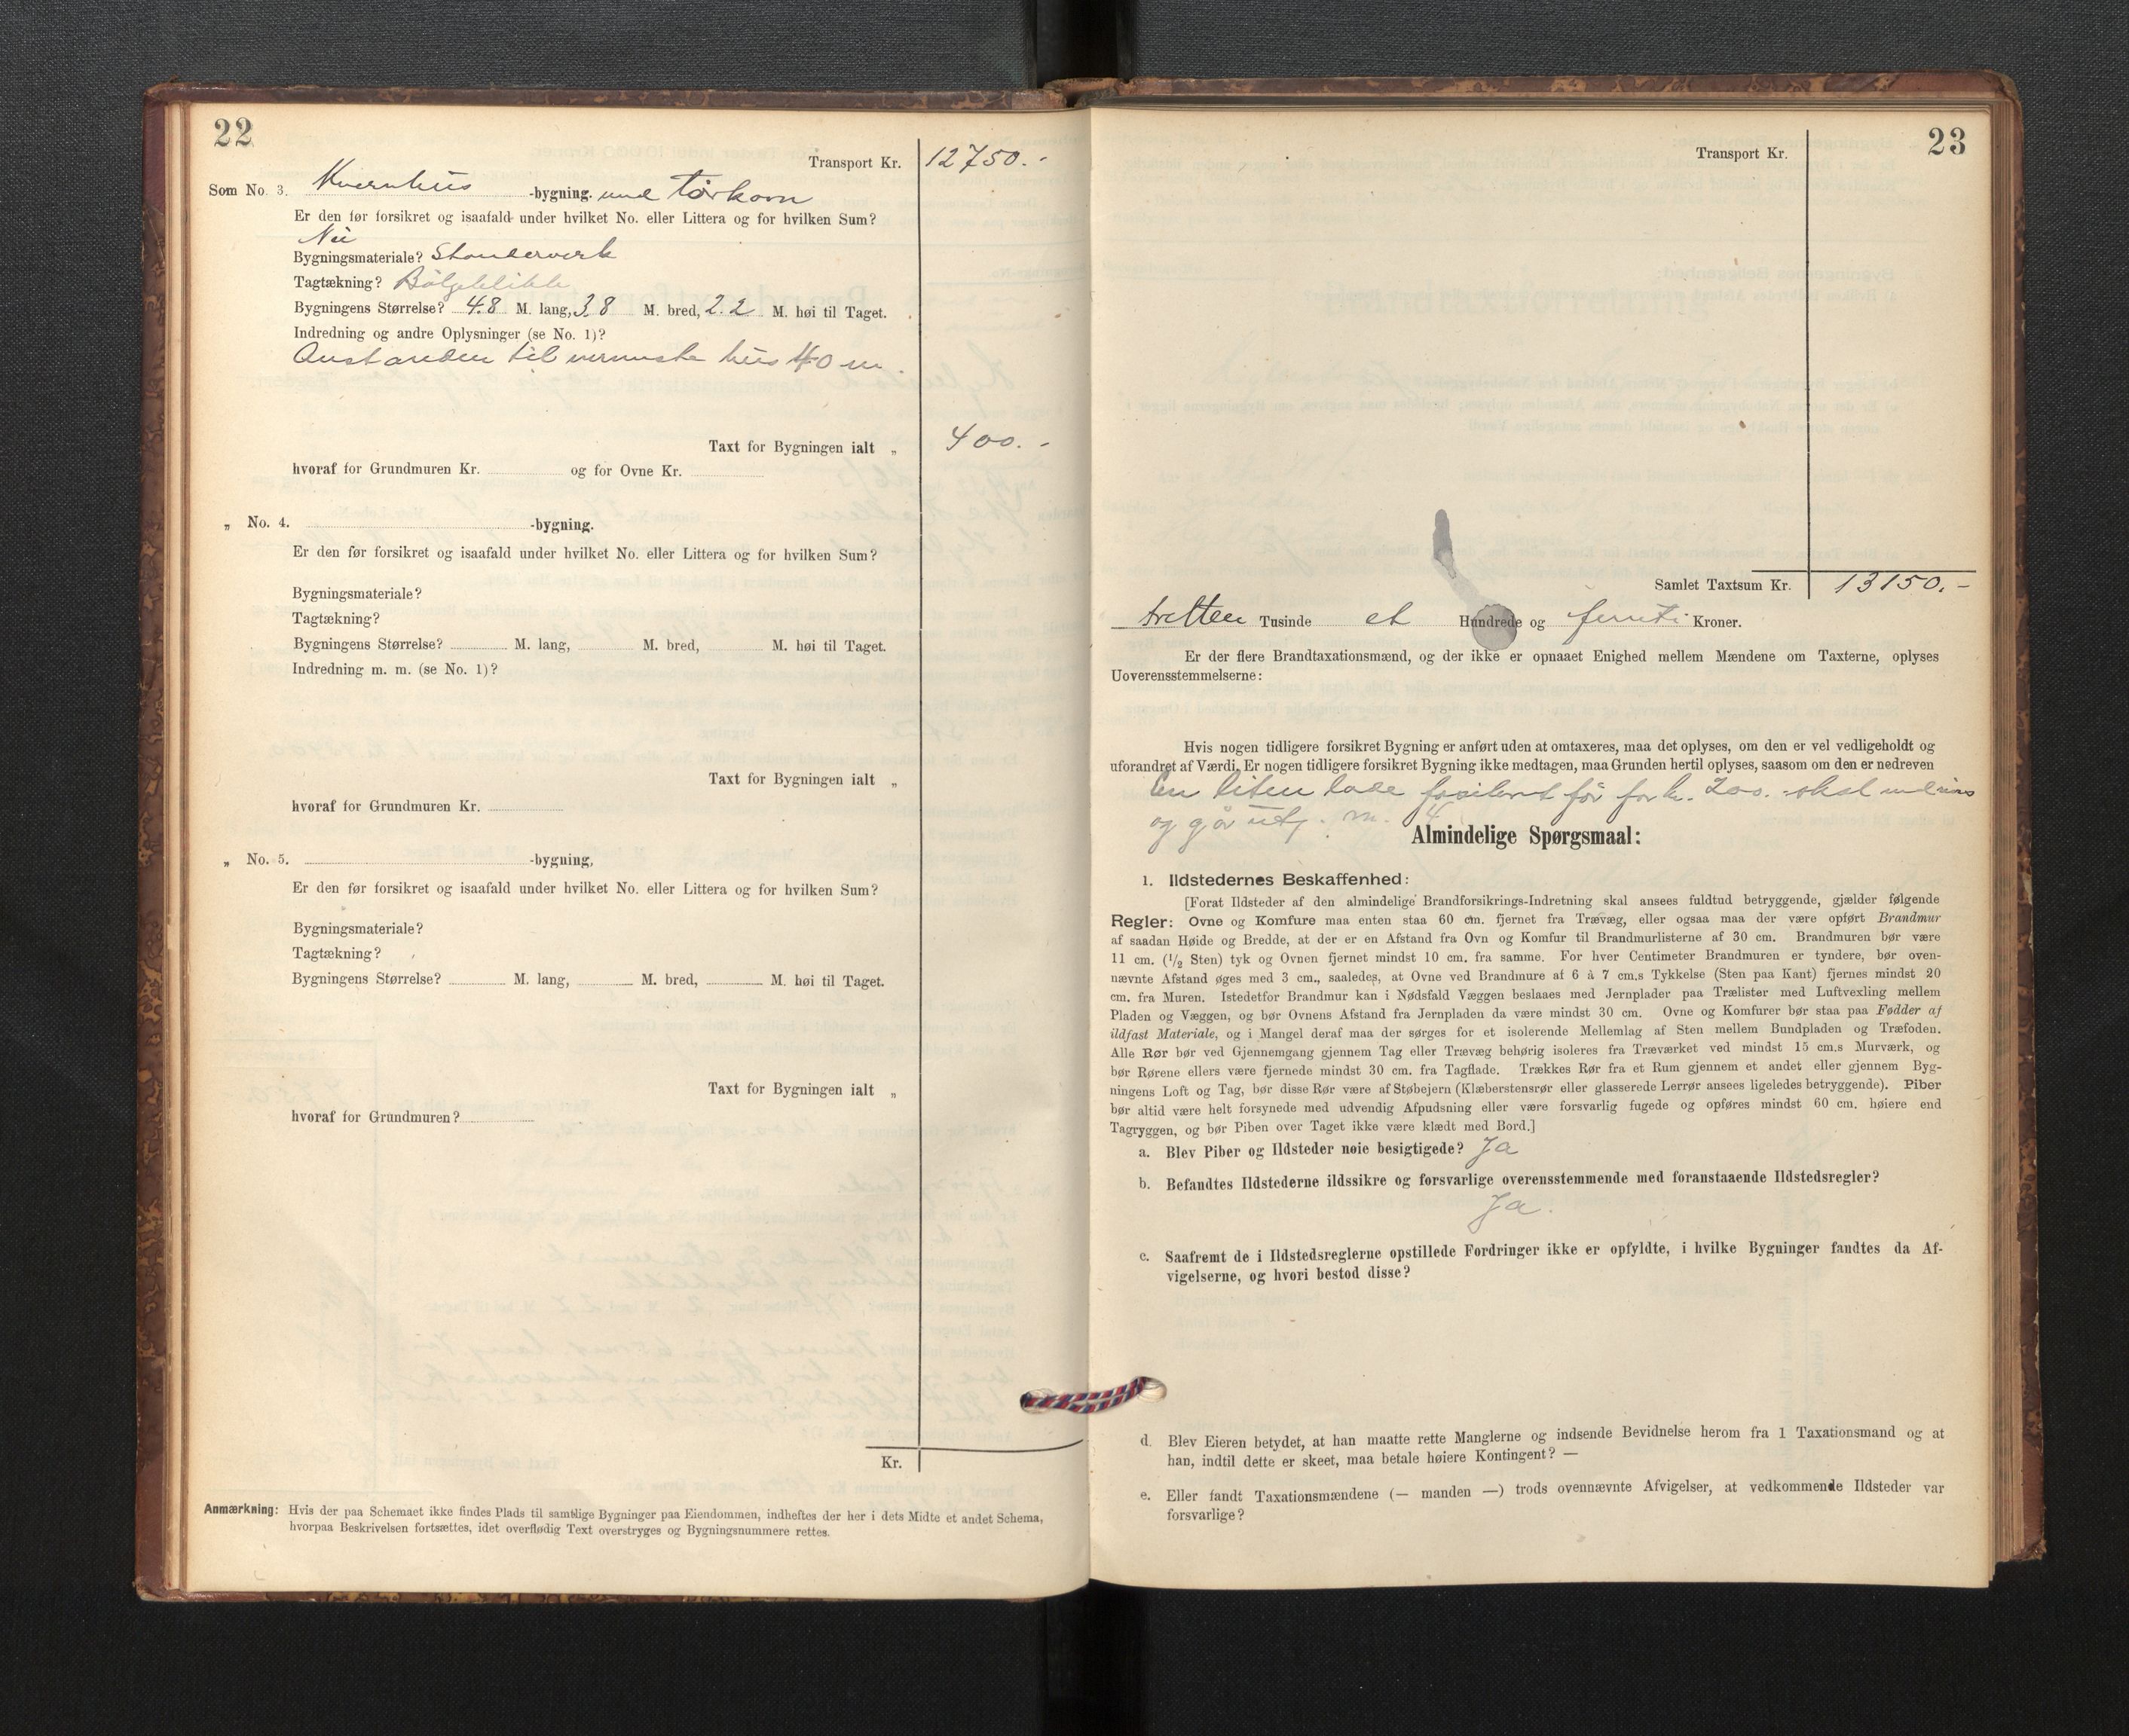 22
Transport Kr. 12750.-
Som No. 3. Kvernhus -bygning. med tørkovn
Er den før forsikret og isaafald under hvilket No. eller Littera og for hvilken Sum?
Nei
Bygningsmateriale? Standerverk
Tagtækning? Bölgeblikk
Bygningens Størrelse? 4.8 M. lang, 3.8 M. bred, 2.2 M. høi til Taget.
Indredning og andre Oplysninger (se No. 1)?
Avstanden til nermeste hus 40 m.
Taxt for Bygningen ialt „ 400.-
hvoraf for Grundmuren Kr. og for Ovne Kr.
„ No. 4. -bygning.
Er den før forsikret og isaafald under hvilket No. eller Littera og for hvilken Sum?
Bygningsmateriale?
Tagtækning?
Bygningens Størrelse? M. lang, M. bred, M. høi til Taget.
Indredning m. m. (se No. 1)?
Taxt for Bygningen ialt „
hvoraf for Grundmuren Kr.
„ No. 5. -bygning,
Er den før forsikret og isaafald under hvilket No. eller Littera og for hvilken Sum?
Bygningsmateriale?
Tagtækning?
Bygningens Størrelse? M. lang, M. bred, M. høi til Taget.
Taxt for Bygningen ialt „
hvoraf for Grundmuren?
Kr.
Anmærkning: Hvis der paa Schemaet ikke findes Plads til samtlige Bygninger paa Eiendommen, indheftes der her i dets Midte et andet Schema,
hvorpaa Beskrivelsen fortsættes, idet overflødig Text overstryges og Bygningsnummere rettes.
23
Transport Kr.
Samlet Taxtsum Kr. 13150.-
tretten Tusinde et Hundrede og femti Kroner.
Er der flere Brandtaxationsmænd, og der ikke er opnaaet Enighed mellem Mændene om Taxterne, oplyses
Uoverensstemmelserne:
Hvis nogen tidligere forsikret Bygning er anført uden at omtaxeres, maa det oplyses, om den er vel vedligeholdt og
uforandret af Værdi. Er nogen tidligere forsikret Bygning ikke medtagen, maa Grunden hertil oplyses, saasom om den er nedreven
En liten lade før for kr. 200.
og går utg.
Almindelige Spørgsmaal:
1. Ildstedernes Beskaffenhed:
[Forat Ildsteder af den almindelige Brandforsikrings-Indretning skal ansees fuldtud betryggende, gjælder følgende
Regler: Ovne og Komfure maa enten staa 60 cm. fjernet fra Trævæg, eller ogsaa maa der være opført Brandmur
af saadan Høide og Bredde, at der er en Afstand fra Ovn og Komfur til Brandmurlisterne af 30 cm. Brandmuren bør være
11 cm. (½ Sten) tyk og Ovnen fjernet mindst 10 cm. fra samme. For hver Centimeter Brandmuren er tyndere, bør oven-
nævnte Afstand øges med 3 cm., saaledes, at Ovne ved Brandmure af 6 à 7 cm.s Tykkelse (Sten paa Kant) fjernes mindst 20
cm. fra Muren. Istedetfor Brandmur kan i Nødsfald Væggen beslaaes med Jernplader paa Trælister med Luftvexling mellem
Pladen og Væggen, og bør Ovnens Afstand fra Jernpladen da være mindst 30 cm. Ovne og Komfurer bør staa paa Fødder af
ildfast Materiale, og i Mangel deraf maa der sørges for et isolerende Mellemlag af Sten mellem Bundpladen og Træfoden.
Alle Rør bør ved Gjennemgang gjennem Tag eller Trævæg behørig isoleres fra Træværket ved mindst 15 cm.s Murværk, og
bør Rørene ellers være fjernede mindst 30 cm. fra Tagflade. Trækkes Rør fra et Rum gjennem et andet eller gjennem Byg-
ningens Loft og Tag, bør disse Rør være af Støbejern (Klæberstensrør eller glasserede Lerrør ansees ligeledes betryggende). Piber
bør altid være helt forsynede med udvendig Afpudsning eller være forsvarlig fugede og opføres mindst 60 cm. høiere end
Tagryggen, og bør Piben over Taget ikke være klædt med Bord.]
a. Blev Piber og Ildsteder nøie besigtigede? Ja
b. Befandtes Ildstederne ildssikre og forsvarlige overensstemmende med foranstaaende Ildstedsregler?
Ja.
c. Saafremt de i Ildstedsreglerne opstillede Fordringer ikke er opfyldte, i hvilke Bygninger fandtes da Af-
vigelserne, og hvori bestod disse?
d. Blev Eieren betydet, at han maatte rette Manglerne og indsende Bevidnelse herom fra 1 Taxationsmand og at
han, indtil dette er skeet, maa betale høiere Kontingent? —
e. Eller fandt Taxationsmændene (— manden —) trods ovennævnte Afvigelser, at vedkommende Ildsteder var
forsvarlige?